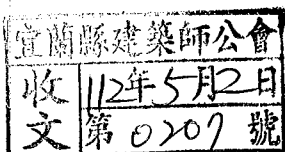 宜蘭縣建築師公會
收文
112年5月2日
第0207號